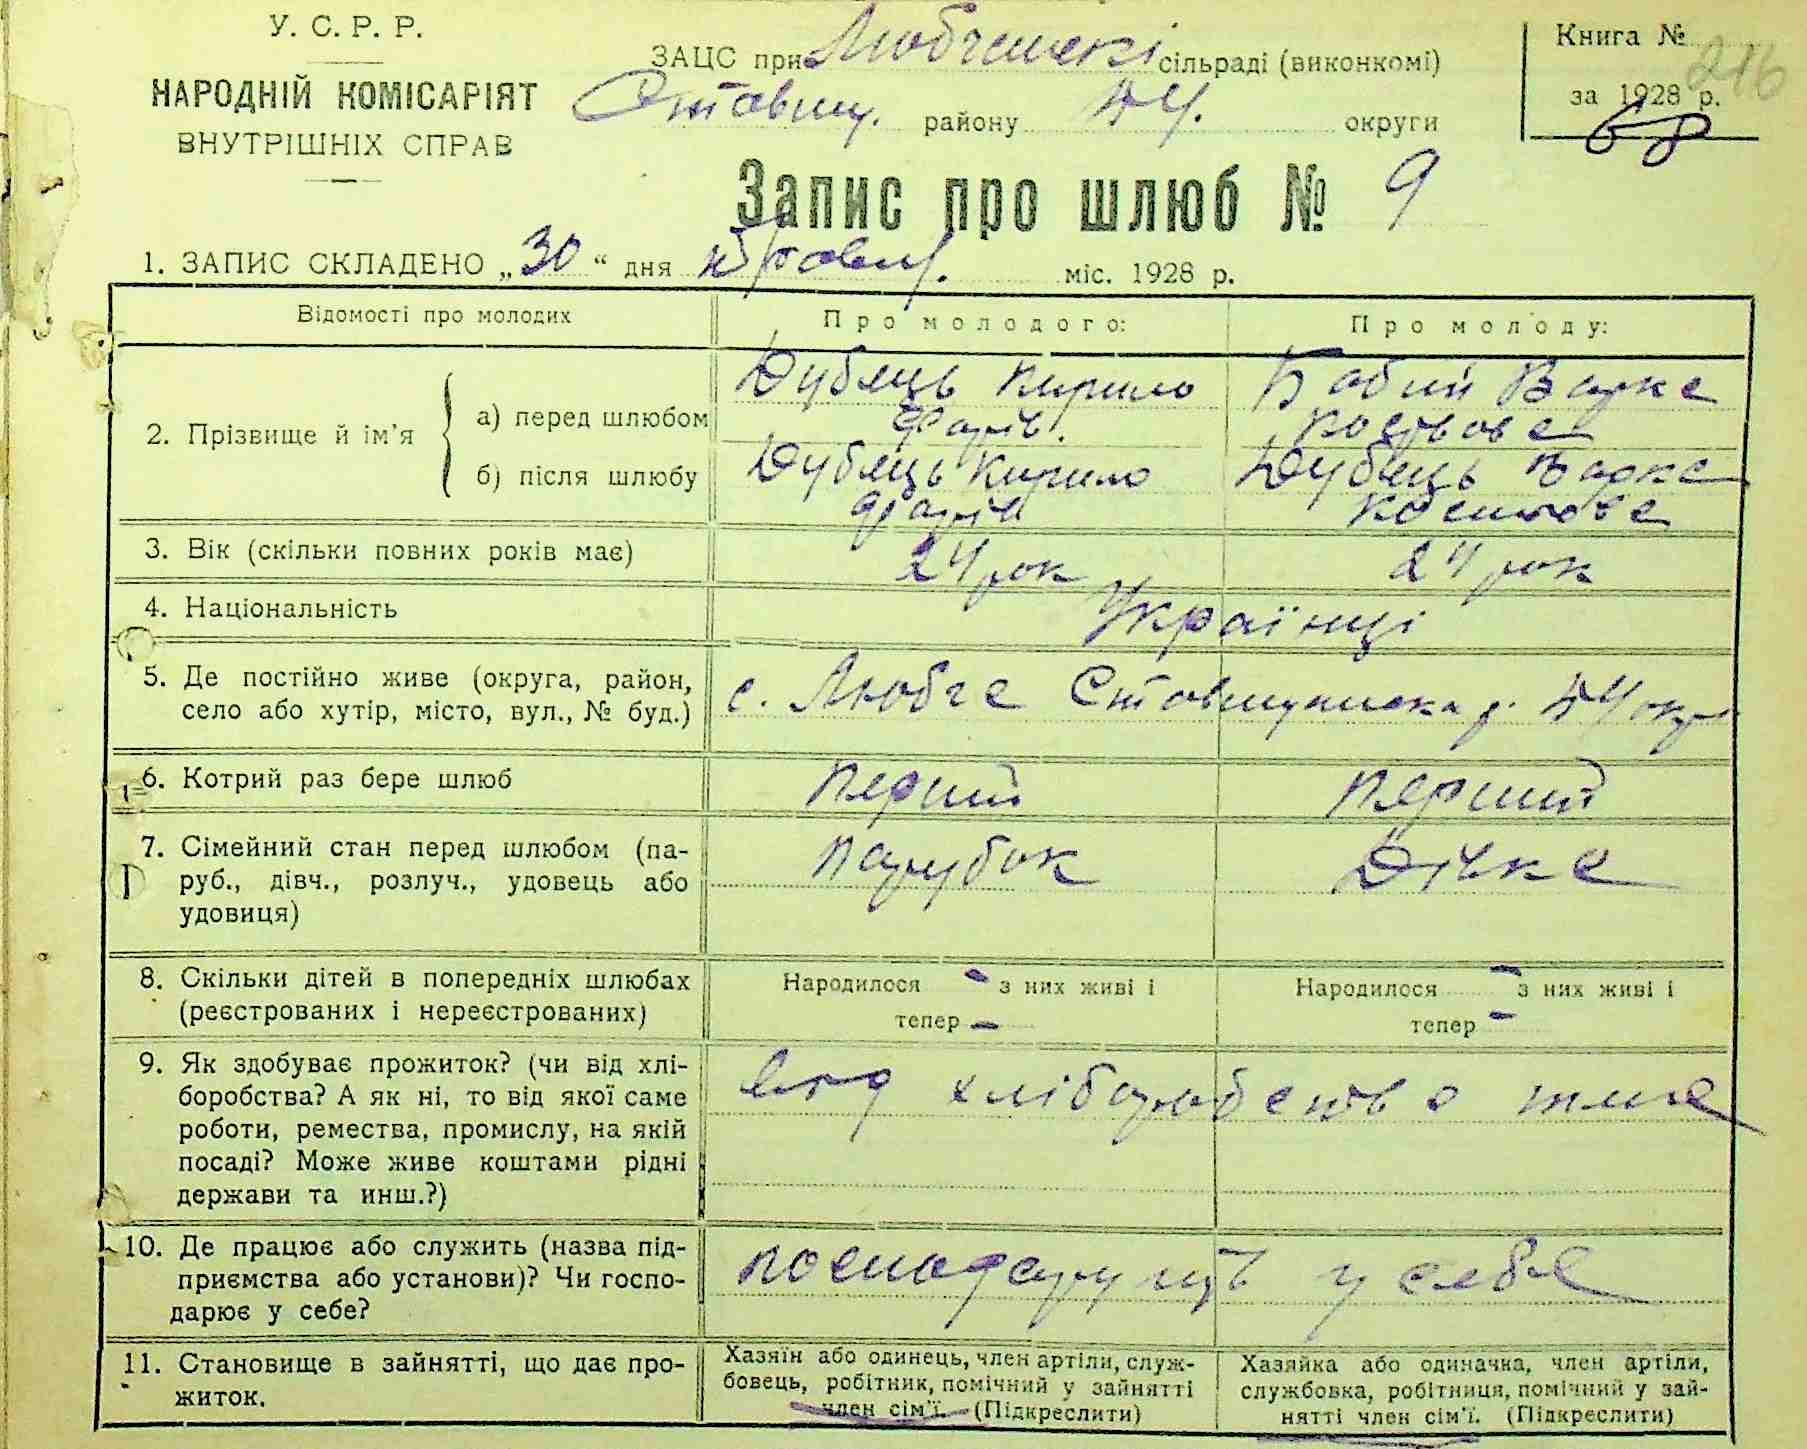 У. С. Р. Р.
НАРОДНІЙ КОМІСАРІЯТ
ВНУТРІШНІХ СПРАВ
ЗАЦС при Любчанскі сільраді (виконкомі)
Ставищ. району БЦ. округи
Книга №
216
за 1928 р.
68
Запис про шлюб № 9
1. ЗАПИС СКЛАДЕНО „30“ дня травня міс. 1928 р.
Відомості про молодих
Про молодого:
Про молоду:
2. Прізвище й ім’я
а) перед шлюбом
Дубець Кирило
Бабий Варка
б) після шлюбу
Дубець Кирило
Дубець Варка
3. Вік (скільки повних років має)
24 рок
24 рок
4. Національність
Українці
5. Де постійно живе (округа, район,
село або хутір, місто, вул., № буд.)
с. Любча Ставищанська р. БЦ окр
6. Котрий раз бере шлюб
Перший
Перший
7. Сімейний стан перед шлюбом (па-
руб., дівч., розлуч., удовець або
удовиця)
Парубок
Дівка
8. Скільки дітей в попередніх шлюбах
(реєстрованих і нереєстрованих)
Народилося - з них живі і
тепер -
Народилося - з них живі і
тепер -
9. Як здобуває прожиток? (чи від хлі-
боробства? А як ні, то від якої саме
роботи, ремества, промислу, на якій
посаді? Може живе коштами рідні
держави та инш.?)
від хліборобства
10. Де працює або служить (назва під-
приємства або установи)? Чи госпо-
дарює у себе?
Господарують у себе
11. Становище в зайнятті, що дає про-
житок.
Хазяїн або одинець, член артіли, служ-
бовець, робітник, помічний у зайнятті
член сім’ї. (Підкреслити)
Хазяйка або одиначка, член артіли,
службовка, робітниця, помічний у зай-
нятті член сім’ї. (Підкреслити)